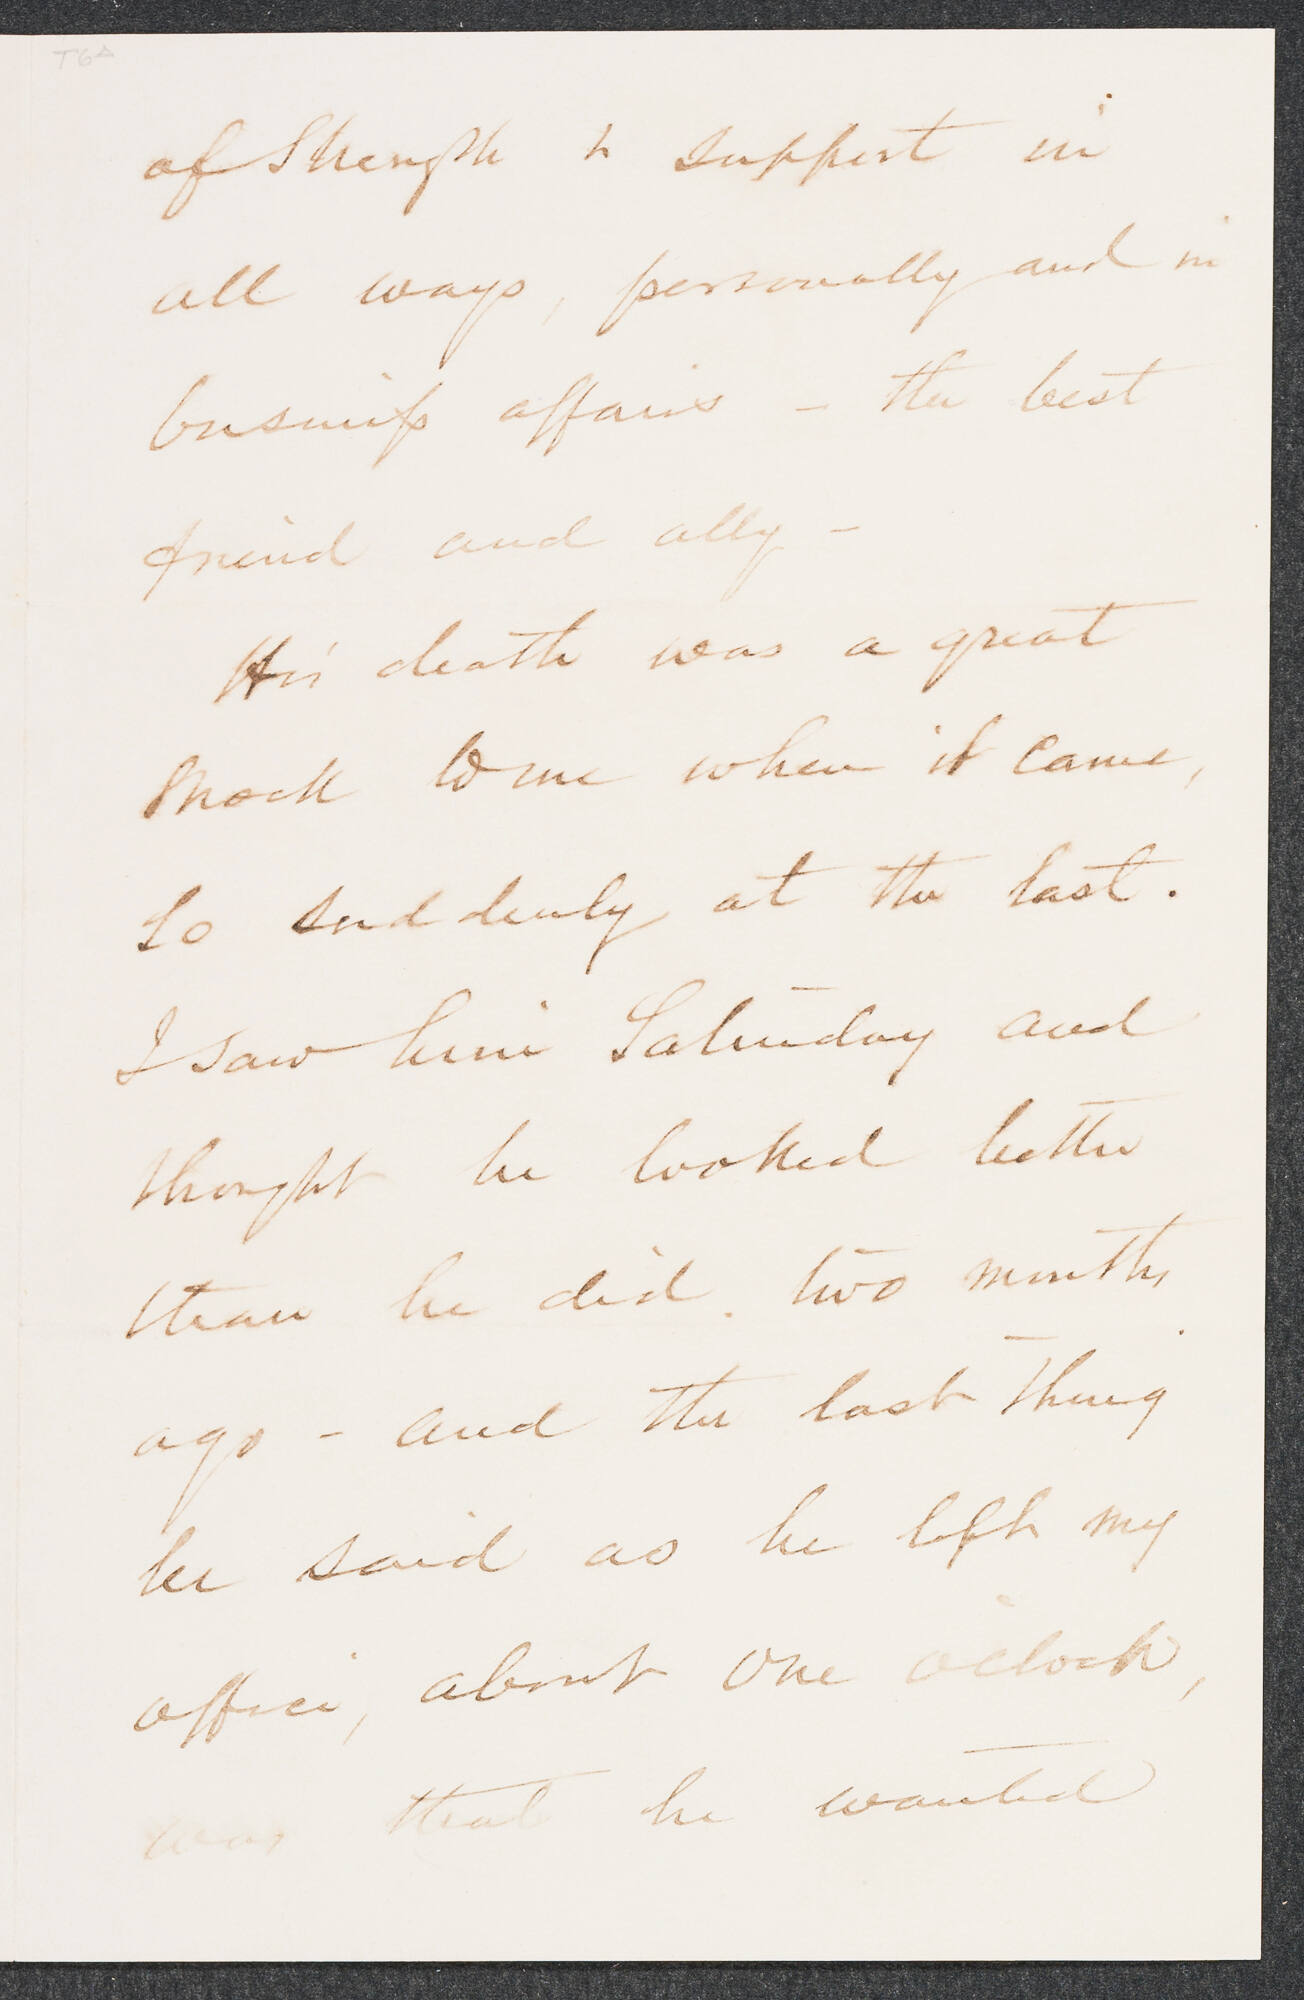 T6A
of Strength & support in
all ways, personally and in
business affairs – the best
friend and ally –
His death was a great
shock to me when it came,
so suddenly at the last.
I saw him Saturday and
thought he looked better
than he did two months
ago – and the last thing
he said as he left my
office, about one o'clock,
was that he wanted